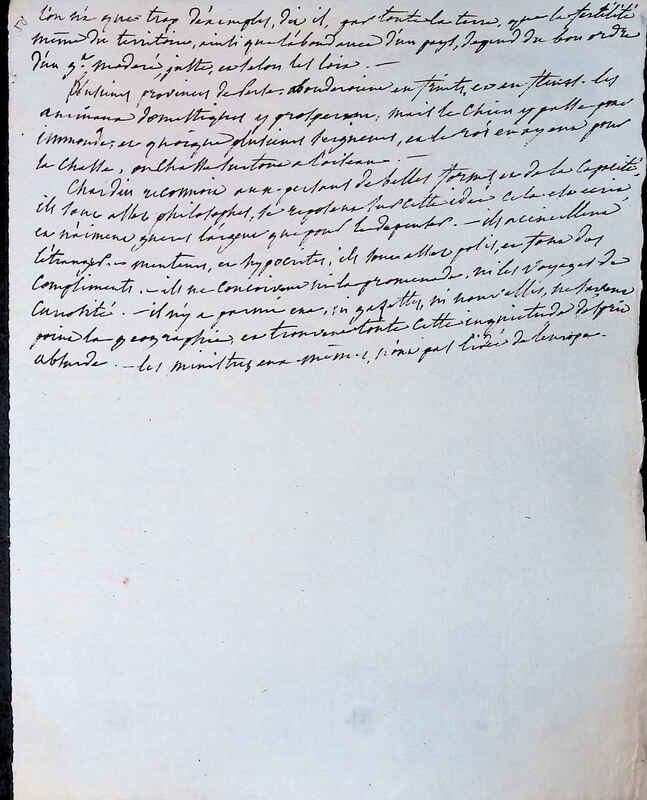 50
l'on n'a que trop d'exemples, dit il, par toute la terre, que la fertilité
même du territoire, ainsi que l'abondance d'un pays, depend du bon ordre
d'un gt moderé, juste, et selon les loix. —
Plusieurs provinces de Perse abonderoient en fruits, et en fleurs. les
animaux domestiques y prosperent, mais le chien y passe pour
immonde, et quoique plusieurs seigneurs, et le roi en ayent pour
la chasse, on chasse surtout a l'oiseau. —
Chardin reconnoit aux persans de belles formes, et de la capacité.
ils sont assez philosophes, se reposent sur cette idée
et n'aiment gueres l'argent que pour le depenser. — ils accueillent
l'étranger. — menteurs, et hypocrites, ils sont assez polis, et font des
compliments. — ils ne conçoivent ni la promenade, ni les voyages de
curiosité. — il n'y a parmi eux, ni gazettes, ni nouvelles, ne savent
point la geographie, et trouvent toute cette inquietude d'esprit
absurde. — les ministres eux-mêmes, n'ont pas l'idée de l'europe.